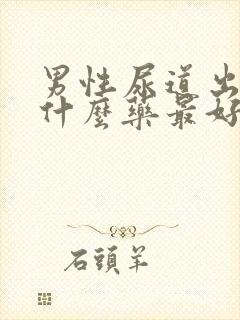 男性尿道出
什麼藥最好
石頭羊